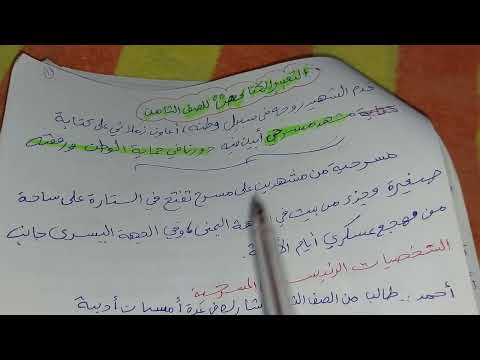 التعبير الكتابي ص للصف الثامن
قدم الشهيد روحه في سبيل وطنه، أتعاون زملائي على كتابة
مشهد مسرحي أبين فيه دورنا في حماية الوطن ورفعته
مسرحية من مشهدين على مسرح تفتح في الستارة على ساحة
صغيرة وجزء من بيت في الجهة اليمنى، وفي الجهة اليسرى جانب
من مهجع عسكري أيام
الشخصيات الرئيسية المسرحية
أحمد .. طالب من الصف شارك في عدة أمسيات أدبية